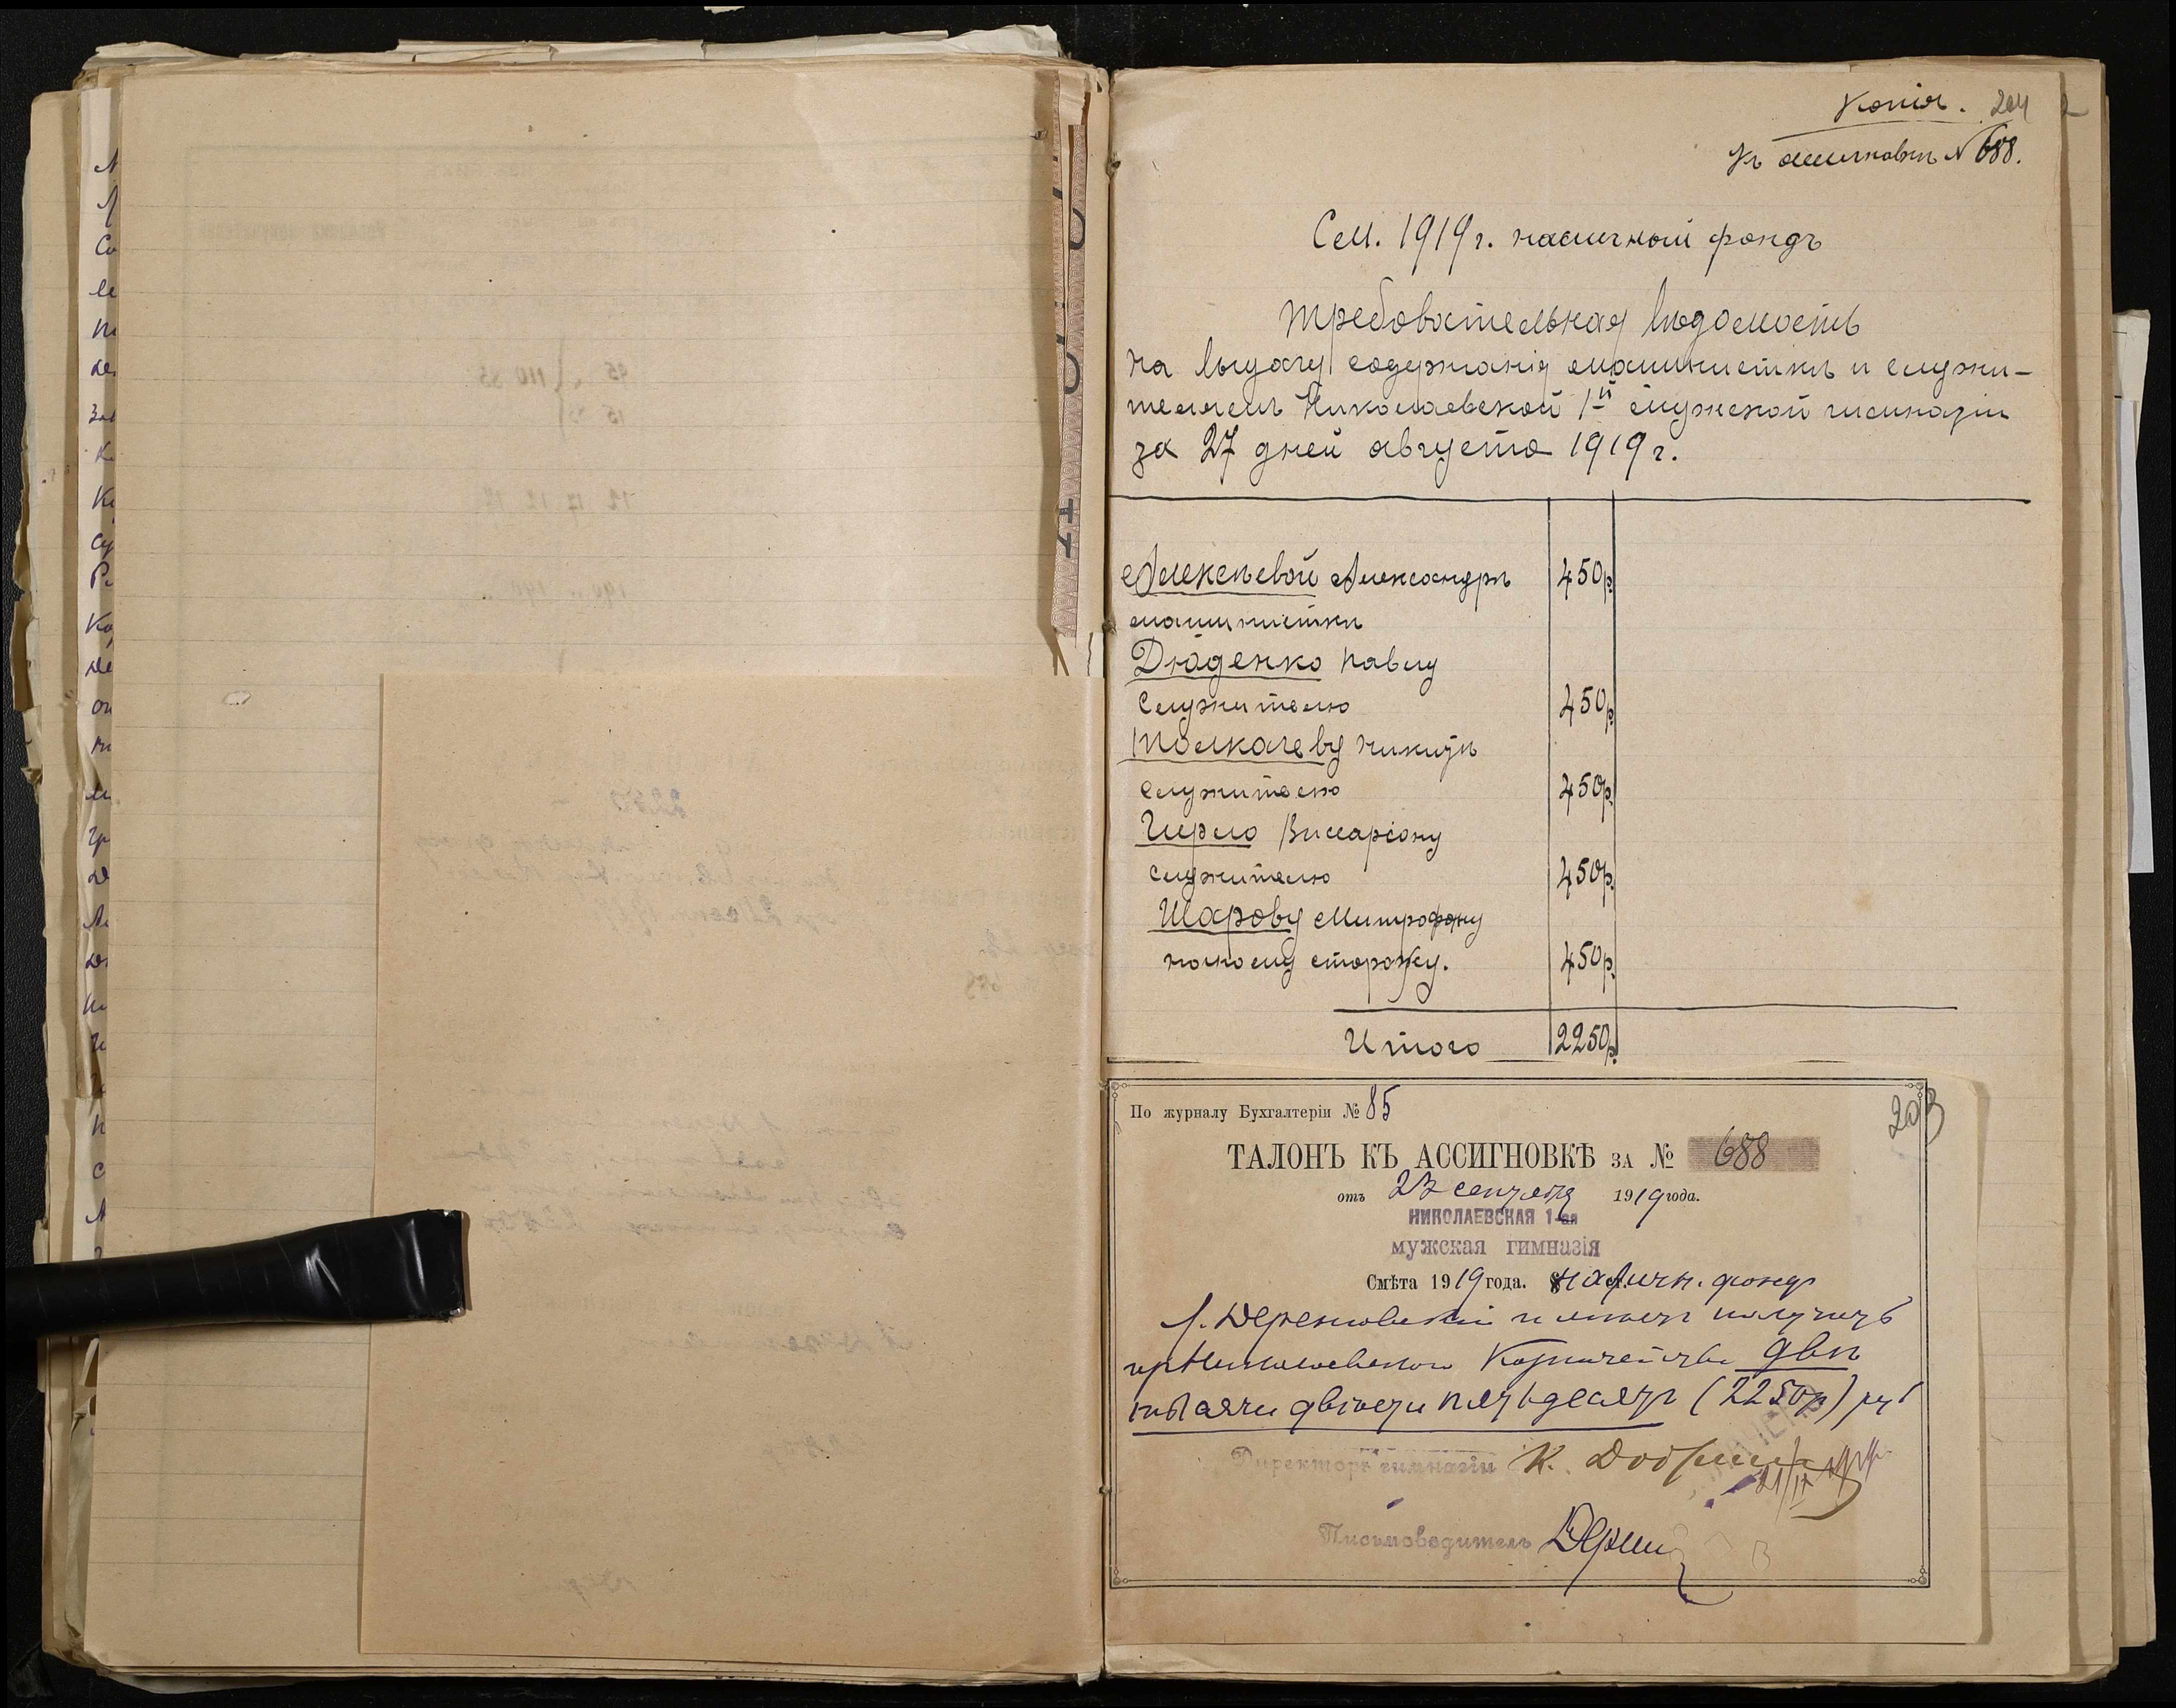 Копія. 204
Къ ассигновкѣ № 688.
См. 1919 г. наличный фондъ
Требовательная вѣдомость
на выдачу содержанія машинисткѣ и служи-
телямъ Николаевской 1-й мужской гимназіи
за 27 дней августа 1919 г.
Алексѣевой Александрѣ 450р.
машинистки
Дюденко Павлу
служителю 450р.
Толкачеву Никитѣ
служителю 450р.
Гирло Виссаріону
служителю 450р.
Шарову Митрофану
ночному сторожу. 450р.
Итого 2250р.
По журналу Бухгалтеріи № 85
203
ТАЛОНЪ КЪ АССИГНОВКѢ ЗА № 688
отъ 23 сентября 1919 года.
НИКОЛАЕВСКАЯ 1-ая
мужская гимназія
Смѣта 1919 года. наличн. фондъ
имѣетъ получить
изъ Николаевскаго Казначейства двѣ
тысячи двѣсти пятьдесятъ (2250р) руб
Директоръ гимназіи К.
Письмоводитель